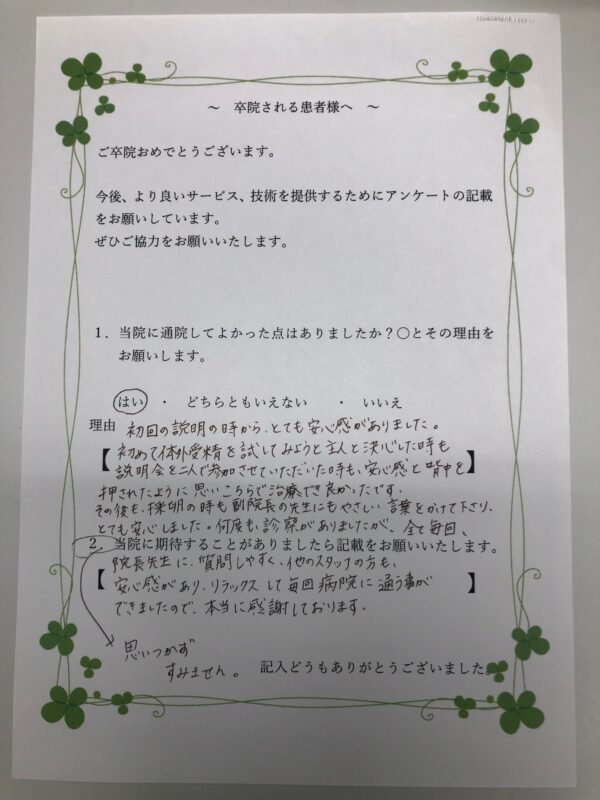 ～　卒院される患者様へ　～
ご卒院おめでとうございます。
今後、より良いサービス、技術を提供するためにアンケートの記載
をお願いしています。
ぜひご協力をお願いいたします。
1．当院に通院してよかった点はありましたか？○とその理由を
お願いします。
はい　・　どちらともいえない　・　いいえ
理由　初回の説明の時から、とても安心感がありました。
【初めて体外受精を試してみようと主人と決心した時も
説明会を二人で参加させていただいた時も、安心感と背中を】
押されたように思いこちらで治療でき良かったです。
その後も、採卵の時も副院長の先生にもやさしい言葉をかけて下さり、
とても安心しました。何度も診察がありましたが、全て毎回、
2．当院に期待することがありましたら記載をお願いいたします。
院長先生に、質問しやすく、他のスタッフの方も、
【安心感があり、リラックスして毎回病院に通う事が】
できましたので、本当に感謝しております。
思いつかず
すみません。
記入どうもありがとうございました。